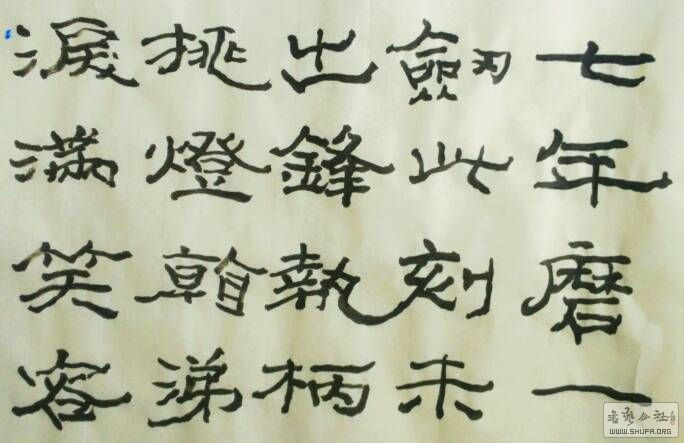 七年磨一
劒此刻未
出鋒執柄
挑燈看涕
淚滿笑容
WWW.SHUFA.ORG